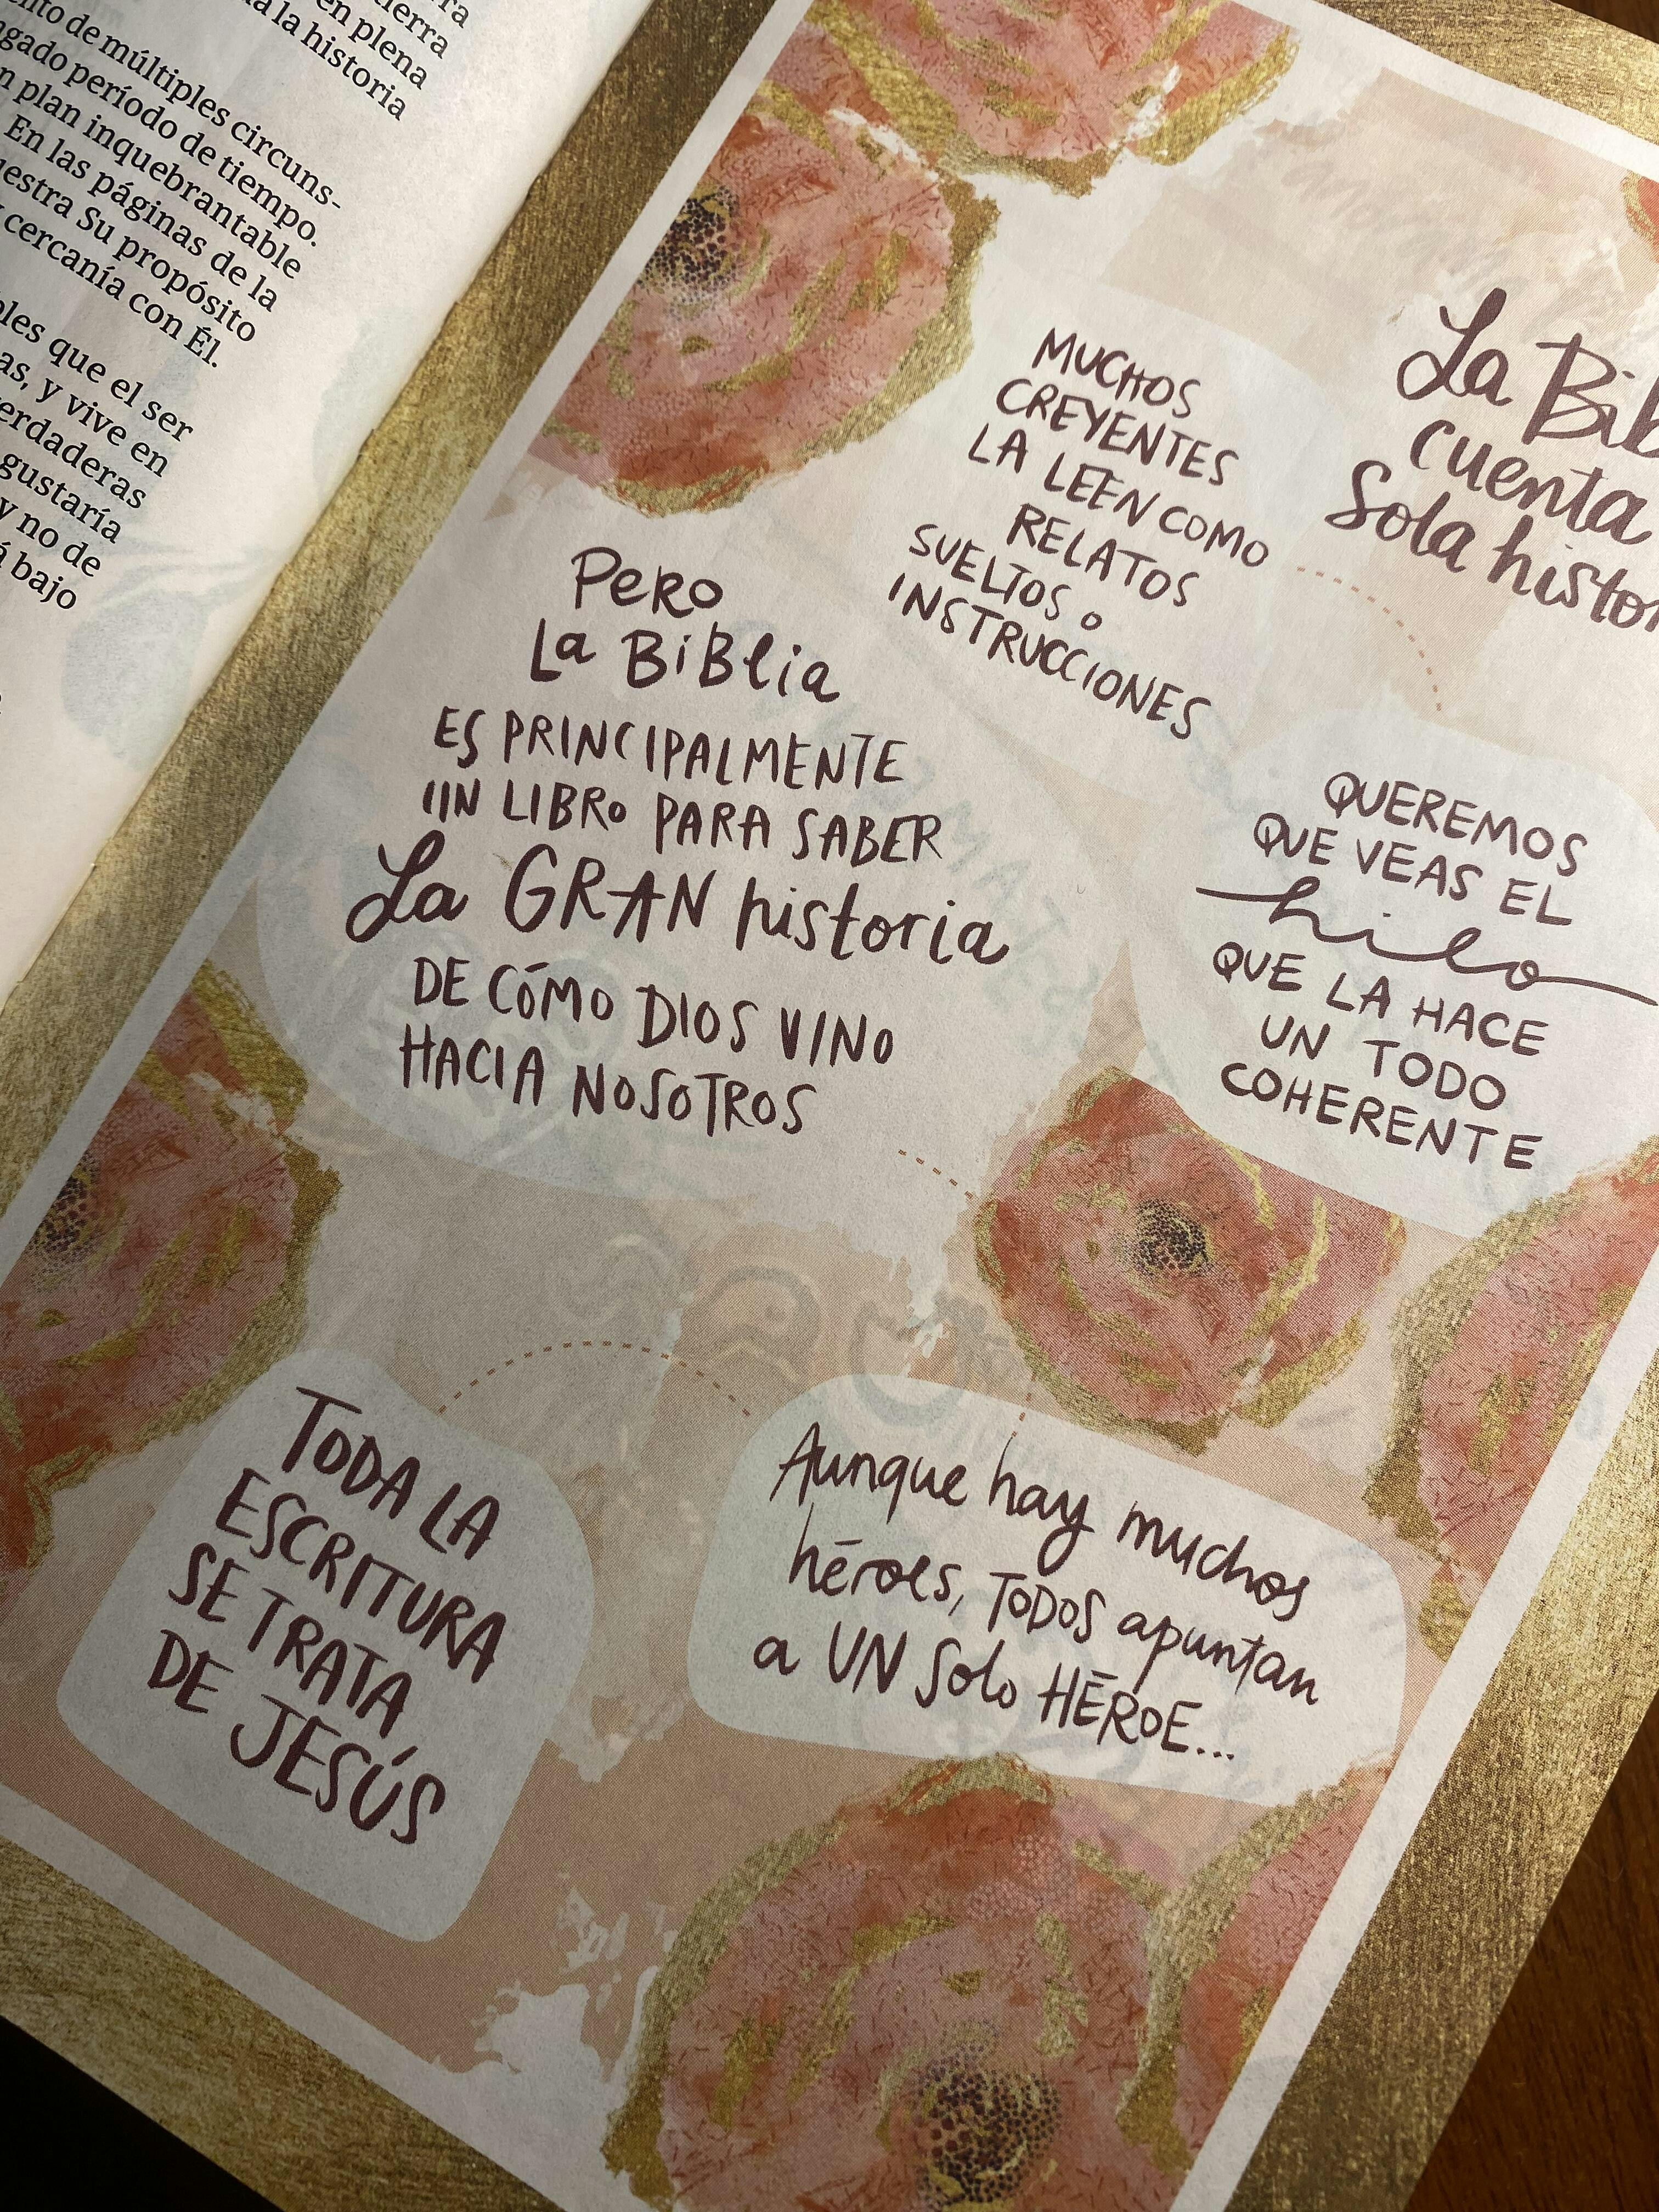 tierra
en plena
la historia
de múltiples circuns-
período de tiempo.
plan inquebrantable
En las páginas de la
Su propósito
cercanía con Él.
que el ser
y vive en
verdaderas
gustaría
y no de
bajo
La
cuenta
Sola
MUCHOS
CREYENTES
LA LEEN COMO
RELATOS
SUELTOS o
INSTRUCCIONES
PERO
La BiBlia
ES PRINCIPALMENTE
UN LIBRO PARA SABER
La GRAN historia
DE CÓMO DIOS VINO
HACIA NOSOTROS
QUEREMOS
QUE VEAS EL
hilo
QUE LA HACE
UN TODO
COHERENTE
Aunque hay muchos
héroes, TODOS apuntan
a UN Solo HÉROE...
TODA LA
ESCRITURA
SE TRATA
DE JESÚS